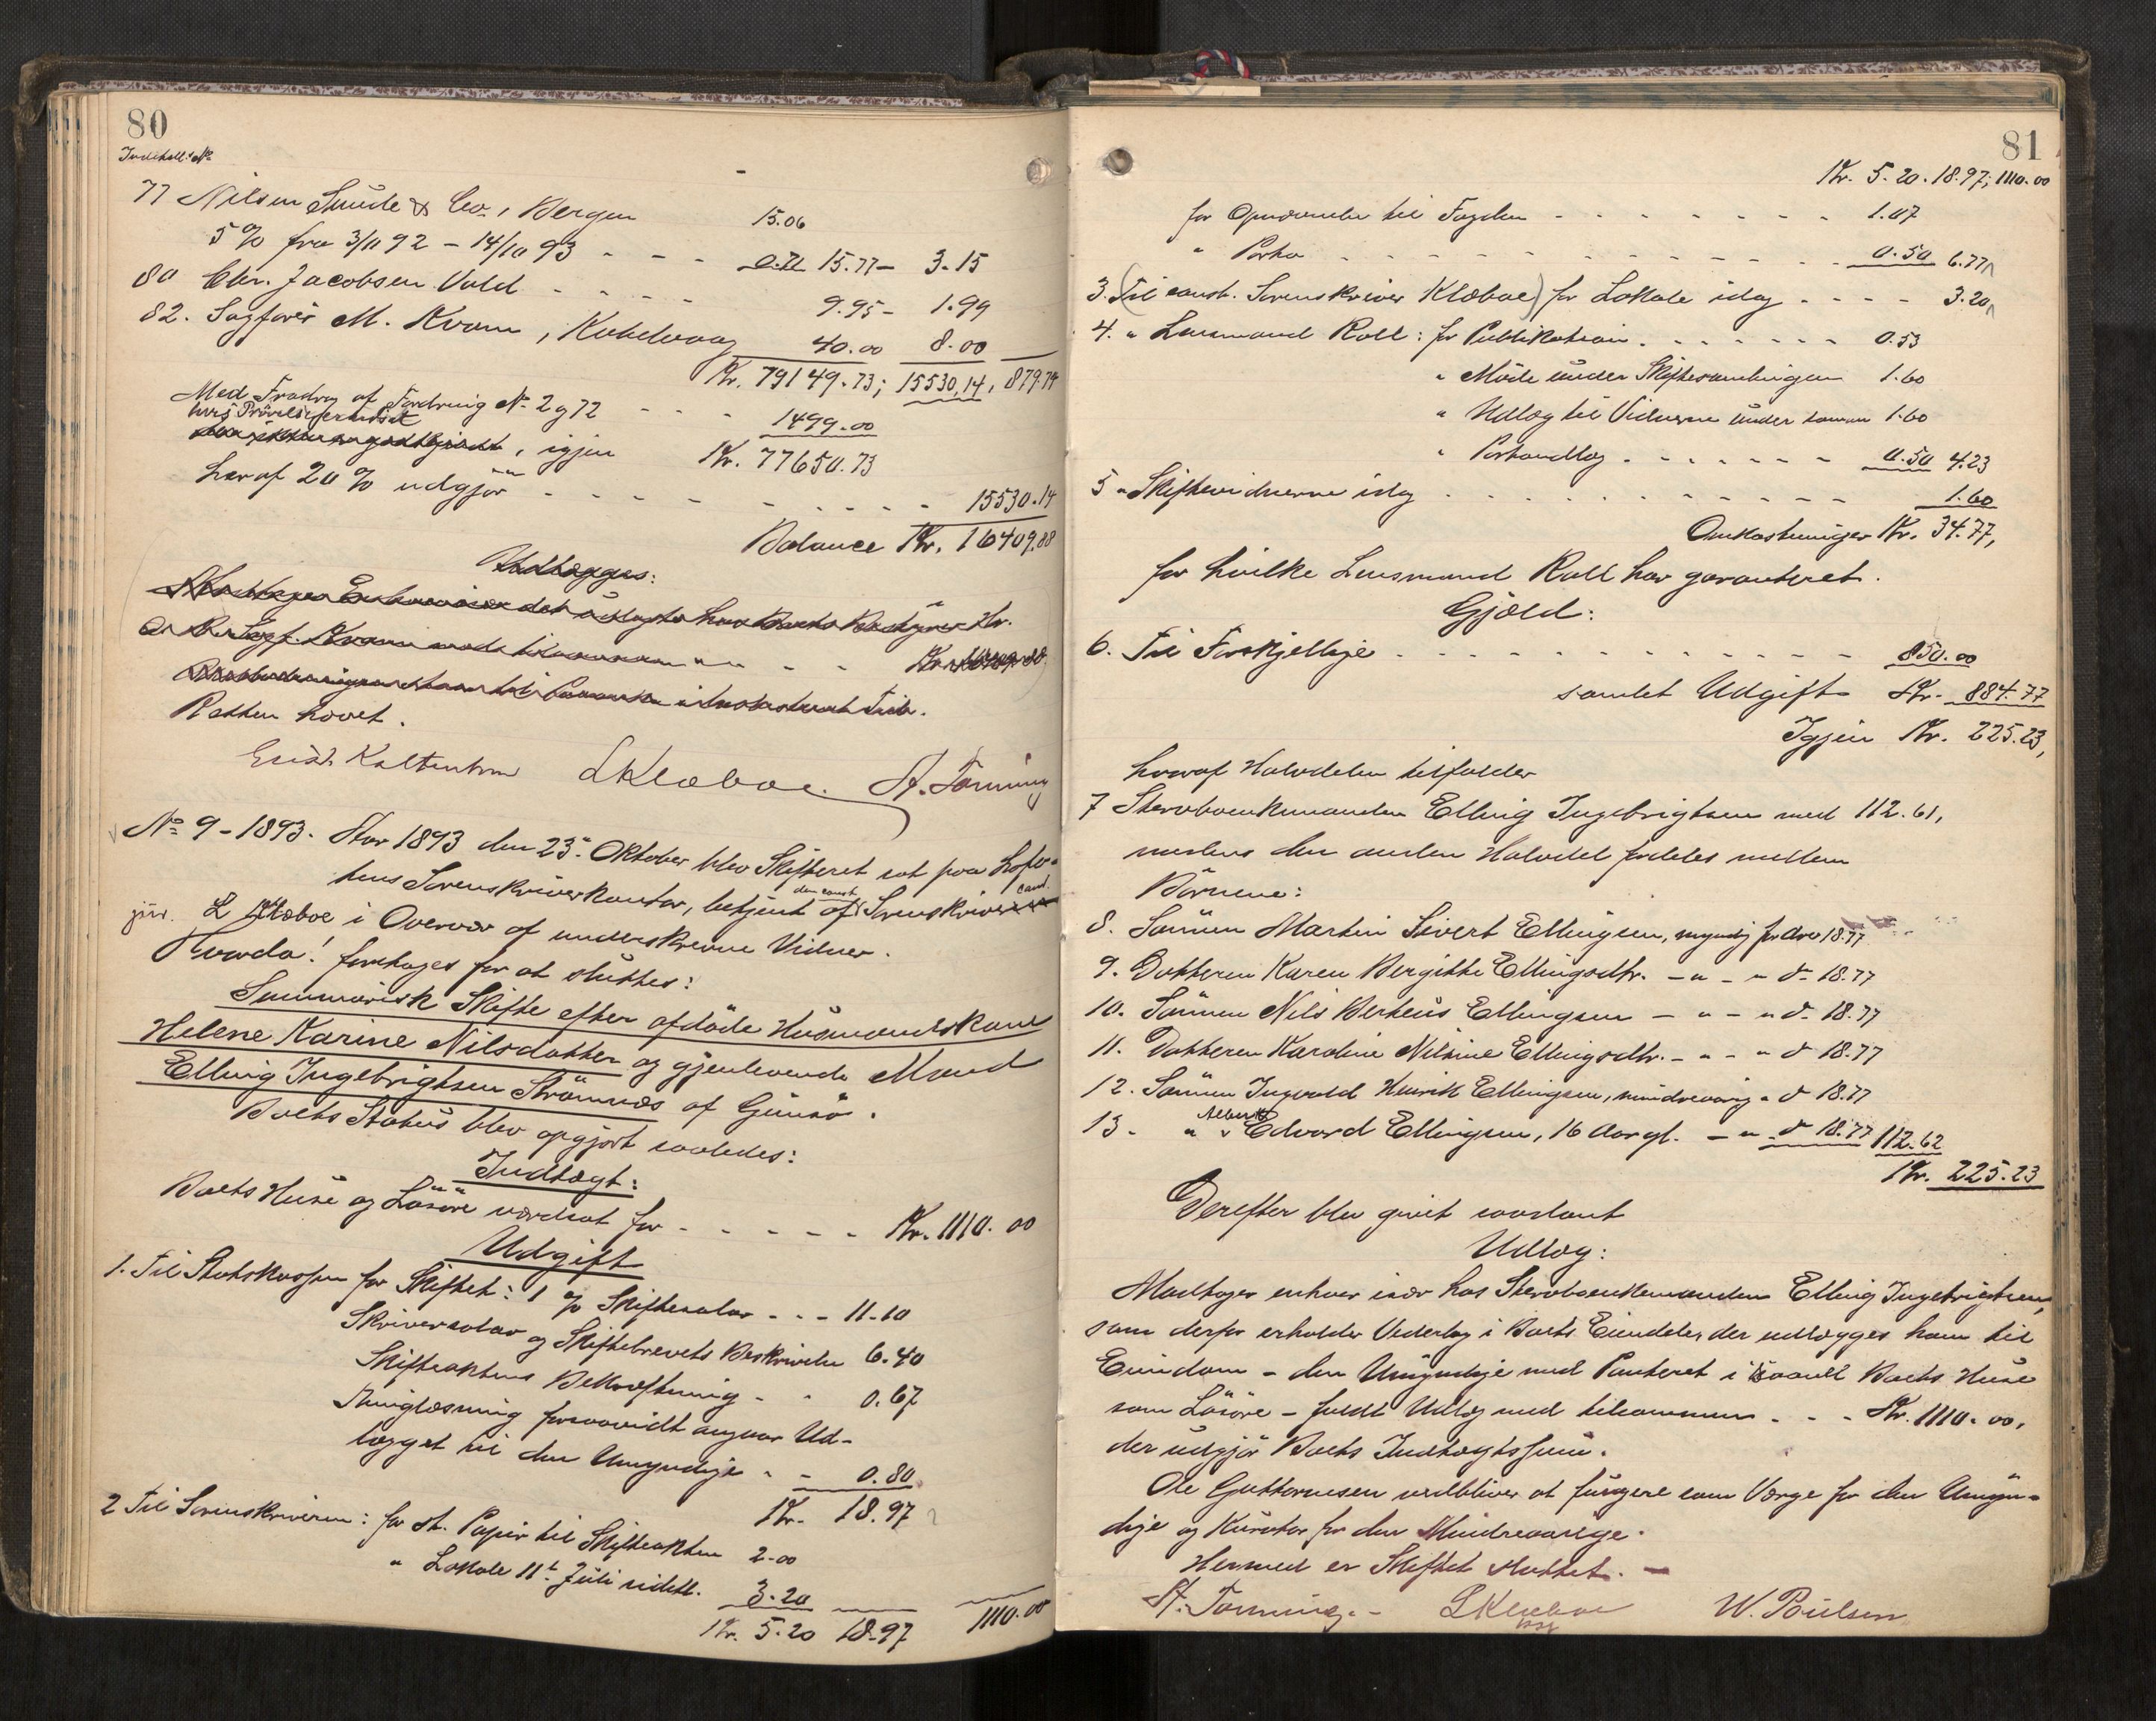 80
77 Nilsen Smide & Co., Bergen 15.06
5% fra 3/11 92 - 14/10 93 - - - 0.71 15.77 - 3.15
80 Chr. Jacobsen Vold - - - - 9.95 - 1.99
82. Sagfører M. Kvam, Kabelvaag 40.00 8.00
Kr. 79149.73; 15530,14, 879.74
Med Fradrag af Fordring No 2 og 72 - - - 1499.00
hvis Prioritet
, igjen Kr. 77650.73
heraf 20% udgjör - - - - - - - 15530.14
Balance Kr. 16409.88
Udlægges:
Retten hævet.
L Klæboe. A. Tönning
No 9 - 1893. Aar 1893 den 23de Oktober blev Skifteret sat paa Lofo-
tens Sorenskriverkontor, betjent af den const. Sorenskriver cand.
jur. L Klæboe i Overvær af underskrevne Vidner.
Hvorda! foretages for at sluttes:
Summarisk Skifte efter afdöde Husmandskone
Helene Karine Nilsdatter og gjenlevende Mand
Elling Ingebrigtsen Strömnæs af Gimsö.
Boets Status blev opgjort saaledes:
Indtægt:
Boets Huse og Lösöre værdsat for - - - - - Kr. 1110.00
Udgift
1. Til Statskassen for Skiftet: 1 % Skiftesalær - - - 11.10
Skriversalær og Skiftebrevets Beskrivelse 6.40
Skifteaktens Bekræftning - - 0.67
Thinglæsning forsaavidt angaar Ud-
lægget til den Umyndige - - 0.80
Kr. 18.97
2 Til Sorenskriveren: for st. Papir til Skifteakten 2.00
" Lokale 11te Juli sidstl. 3.20
Kr. 5.20 18.97 1110.00
81
Kr. 5.20. 18.97; 1110.00
for Opnævnelse til Fogden - - - - - - - 1.07
" Porto - - - - - - - - - - 0.50 6.77
3. (Til const. Sorenskriver Klæboe) for Lokale idag - - - - 3.20
4. " Lensmand Roll: for Publikation - - - - - - 0.53
" Möde under Skiftesamlingen 1.60
" Udlæg til Vidnerne under samme 1.60
" Portoudlæg - - - - - - 0.50 4.23
5 " Skiftevidnerne idag - - - - - - - - - - 1.60
Omkostninger Kr. 34.77,
for hvilke Lensmand Roll har garanteret.
Gjæld:
6. Til Forskjellige - - - - - - - - - - 850.00
samlet Udgift Kr. 884.77
Igjen Kr. 225.23,
hvoraf Halvdelen tilfalder
7 Stervboenkemanden Elling Ingebrigtsen med 112.61,
medens den anden Halvdel fordeles mellem
Börnene:
8. Sönnen Martin Sivert Ellingsen, myndig for Arv 18.77
9. Datteren Karen Bergitte Ellingsdtr. - " - " do 18.77
10. Sönnen Nils Berteus Ellingsen - " - " do 18.77
11. Datteren Karoline Nilsine Ellingsdtr. - " - " do 18.77
12. Sönnen Ingvald Henrik Ellingsen, mindreaarig " do 18.77
13. " " Albert Edvard Ellingsen, 16 Aar gl. - " - do 18.77 112.62
Kr. 225.23
Derefter blev givet saadant
Udlæg:
Modtager enhver især hos Stervboenkemanden Elling Ingebrigtsen,
som derfor erholder Vederlag i Boets Eiendele, der udlægges ham til
Eiendom - den Umyndige med Panteret i saavel Boets Huse
som Lösöre - fuldt Udlæg med tilsammen - - - Kr. 1110.00,
der udgjör Boets Indtægtssum.
Ole Guttormsen vedbliver at fungere som Værge for den Umyn-
dige og Kurator for den Mindreaarige.
Hermed er Skiftet sluttet. -
A. Tönning. - L Klæboe W. Poulsen